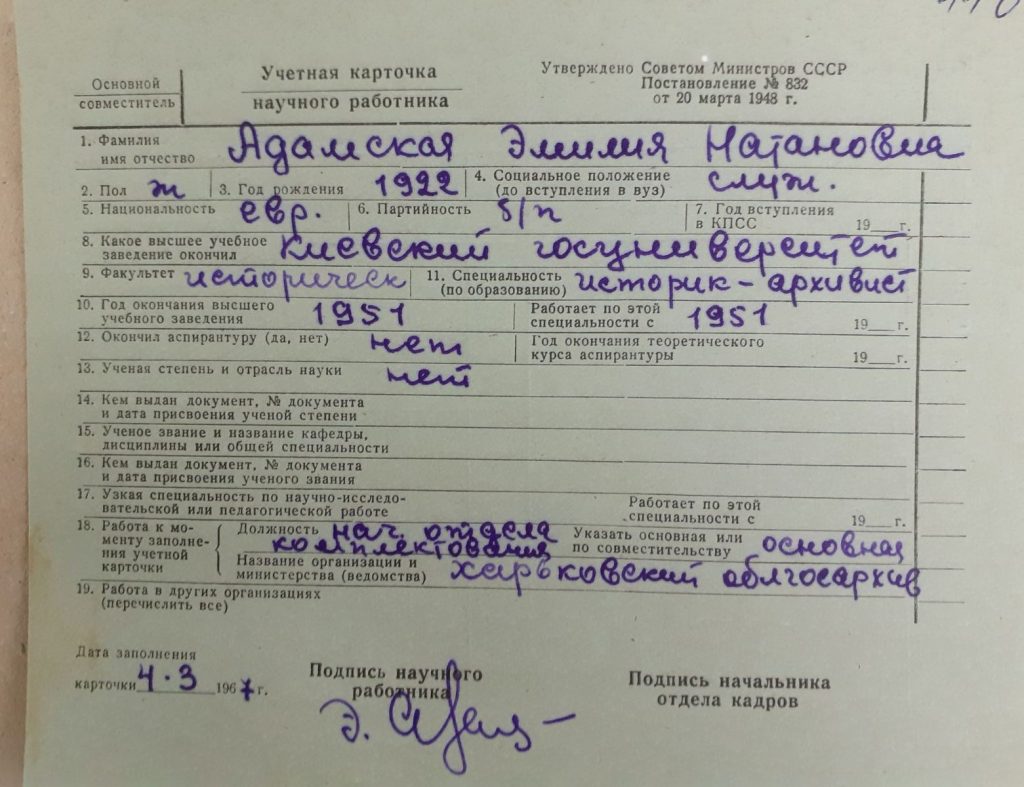 Основной
совместитель
Учетная карточка
научного работника
Утверждено Советом Министров СССР
Постановление № 832
от 20 марта 1948 г.
1. Фамилия
имя отчество Адамская Эмилия Натановна
2. Пол ж 3. Год рождения 1922 4. Социальное положение
(до вступления в вуз) служ.
5. Национальность евр. 6. Партийность б/п 7. Год вступления
в КПСС 19 г.
8. Какое высшее учебное
заведение окончил Киевский госуниверситет
9. Факультет историческ 11. Специальность
(по образованию) историк-архивист
10. Год окончания высшего
учебного заведения 1951 Работает по этой
специальности с 1951 19 г.
12. Окончил аспирантуру (да, нет) нет Год окончания теоретического
курса аспирантуры 19 г.
13. Ученая степень и отрасль науки нет
14. Кем выдан документ, № документа
и дата присвоения ученой степени
15. Ученое звание и название кафедры,
дисциплины или общей специальности
16. Кем выдан документ, № документа
и дата присвоения ученого звания
17. Узкая специальность по научно-исследо-
вательской или педагогической работе Работает по этой
специальности с 19 г.
18. Работа к мо-
менту заполне-
ния учетной
карточки
Должность нач. отдела
комплектования
Указать основная или
по совместительству основная
Название организации и
министерства (ведомства) харьковский облгосархив
19. Работа в других организациях
(перечислить все)
Дата заполнения
карточки 4.3 1967 г.
Подпись научного
работника
Э.
Подпись начальника
отдела кадров